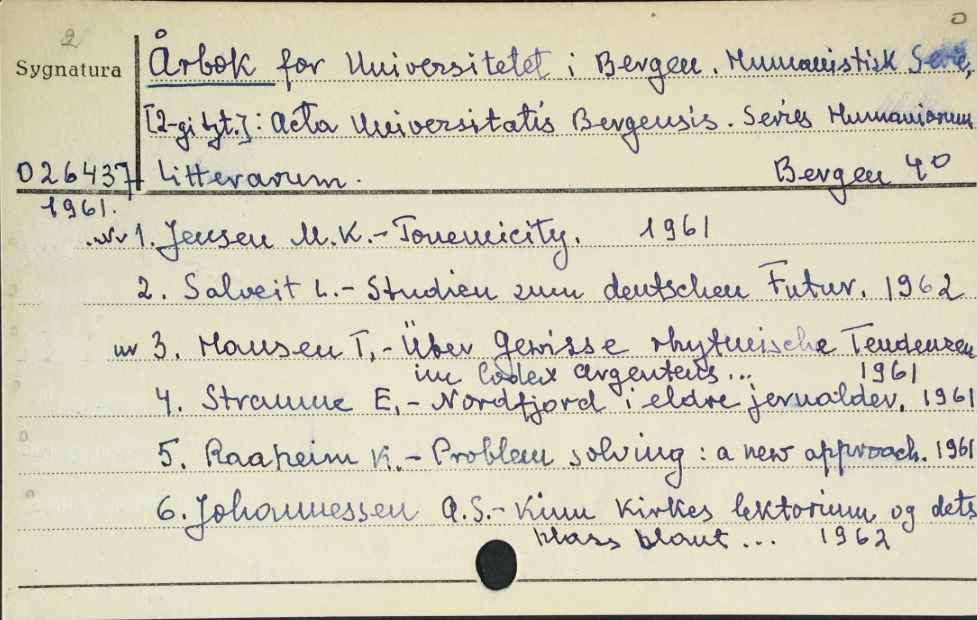 2
Sygnatura
Årbok for Universitetet i Bergen. Humanistisk Serie,
[2-gi tyt.]: Acta Universitatis Bergensis. Series Humaniorum
026437 Litterarum. Bergen 4°
1961.
Nr 1. Jensen M.K.- Tonemicity. 1961
2. Salveit L.- Studien zum deutschen Futur. 1962
nr 3. Hansen T.- Über Gewisse rhytmische Tendenzen
im Codex argenteus... 1961
4. Straume E.- Nordfjord i eldre jernalder. 1961
5. Raaheim K.- Problem solving: a new approach. 1961
6. Johannessen A.S.- Kinn Kirkes lektorium og dets
plass blant ... 1962